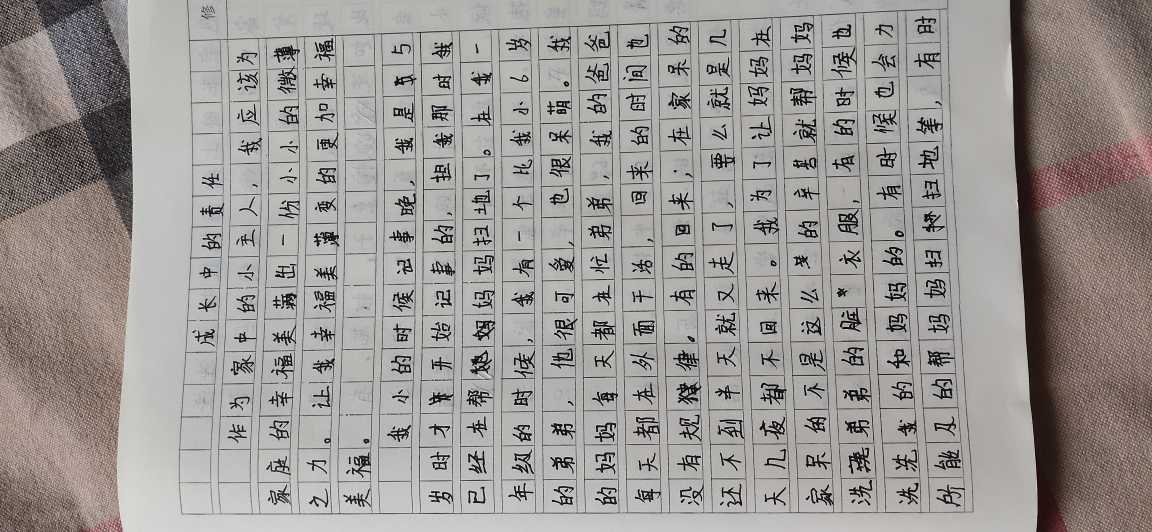 修
成长中的责任
作为家中的小主人，我应该为
家庭的幸福美满出一份小小的微薄
之力。让我幸福美满变的更加幸福
美福。
我小的时候记事晚，我是
岁时才开始记事的，担我那时我
已经在帮妈妈扫地了。在我一
年级的时候，我有一个比我小6岁
的弟弟，他很可爱，也很呆萌。我
的妈妈每天都在忙弟弟，我的爸爸
每天都在外面干活，回来的时间也
没有规律。有的回来；在家呆的
还不到半天就又走了，要么就是几
天几夜都不回来。我为了让妈妈在
家呆的不是这么的辛苦就帮妈妈
洗弟弟的脏衣服，有的时候也
洗洗我的和妈妈的。有时候也会力
所能及的帮妈妈扫扫地等，有时